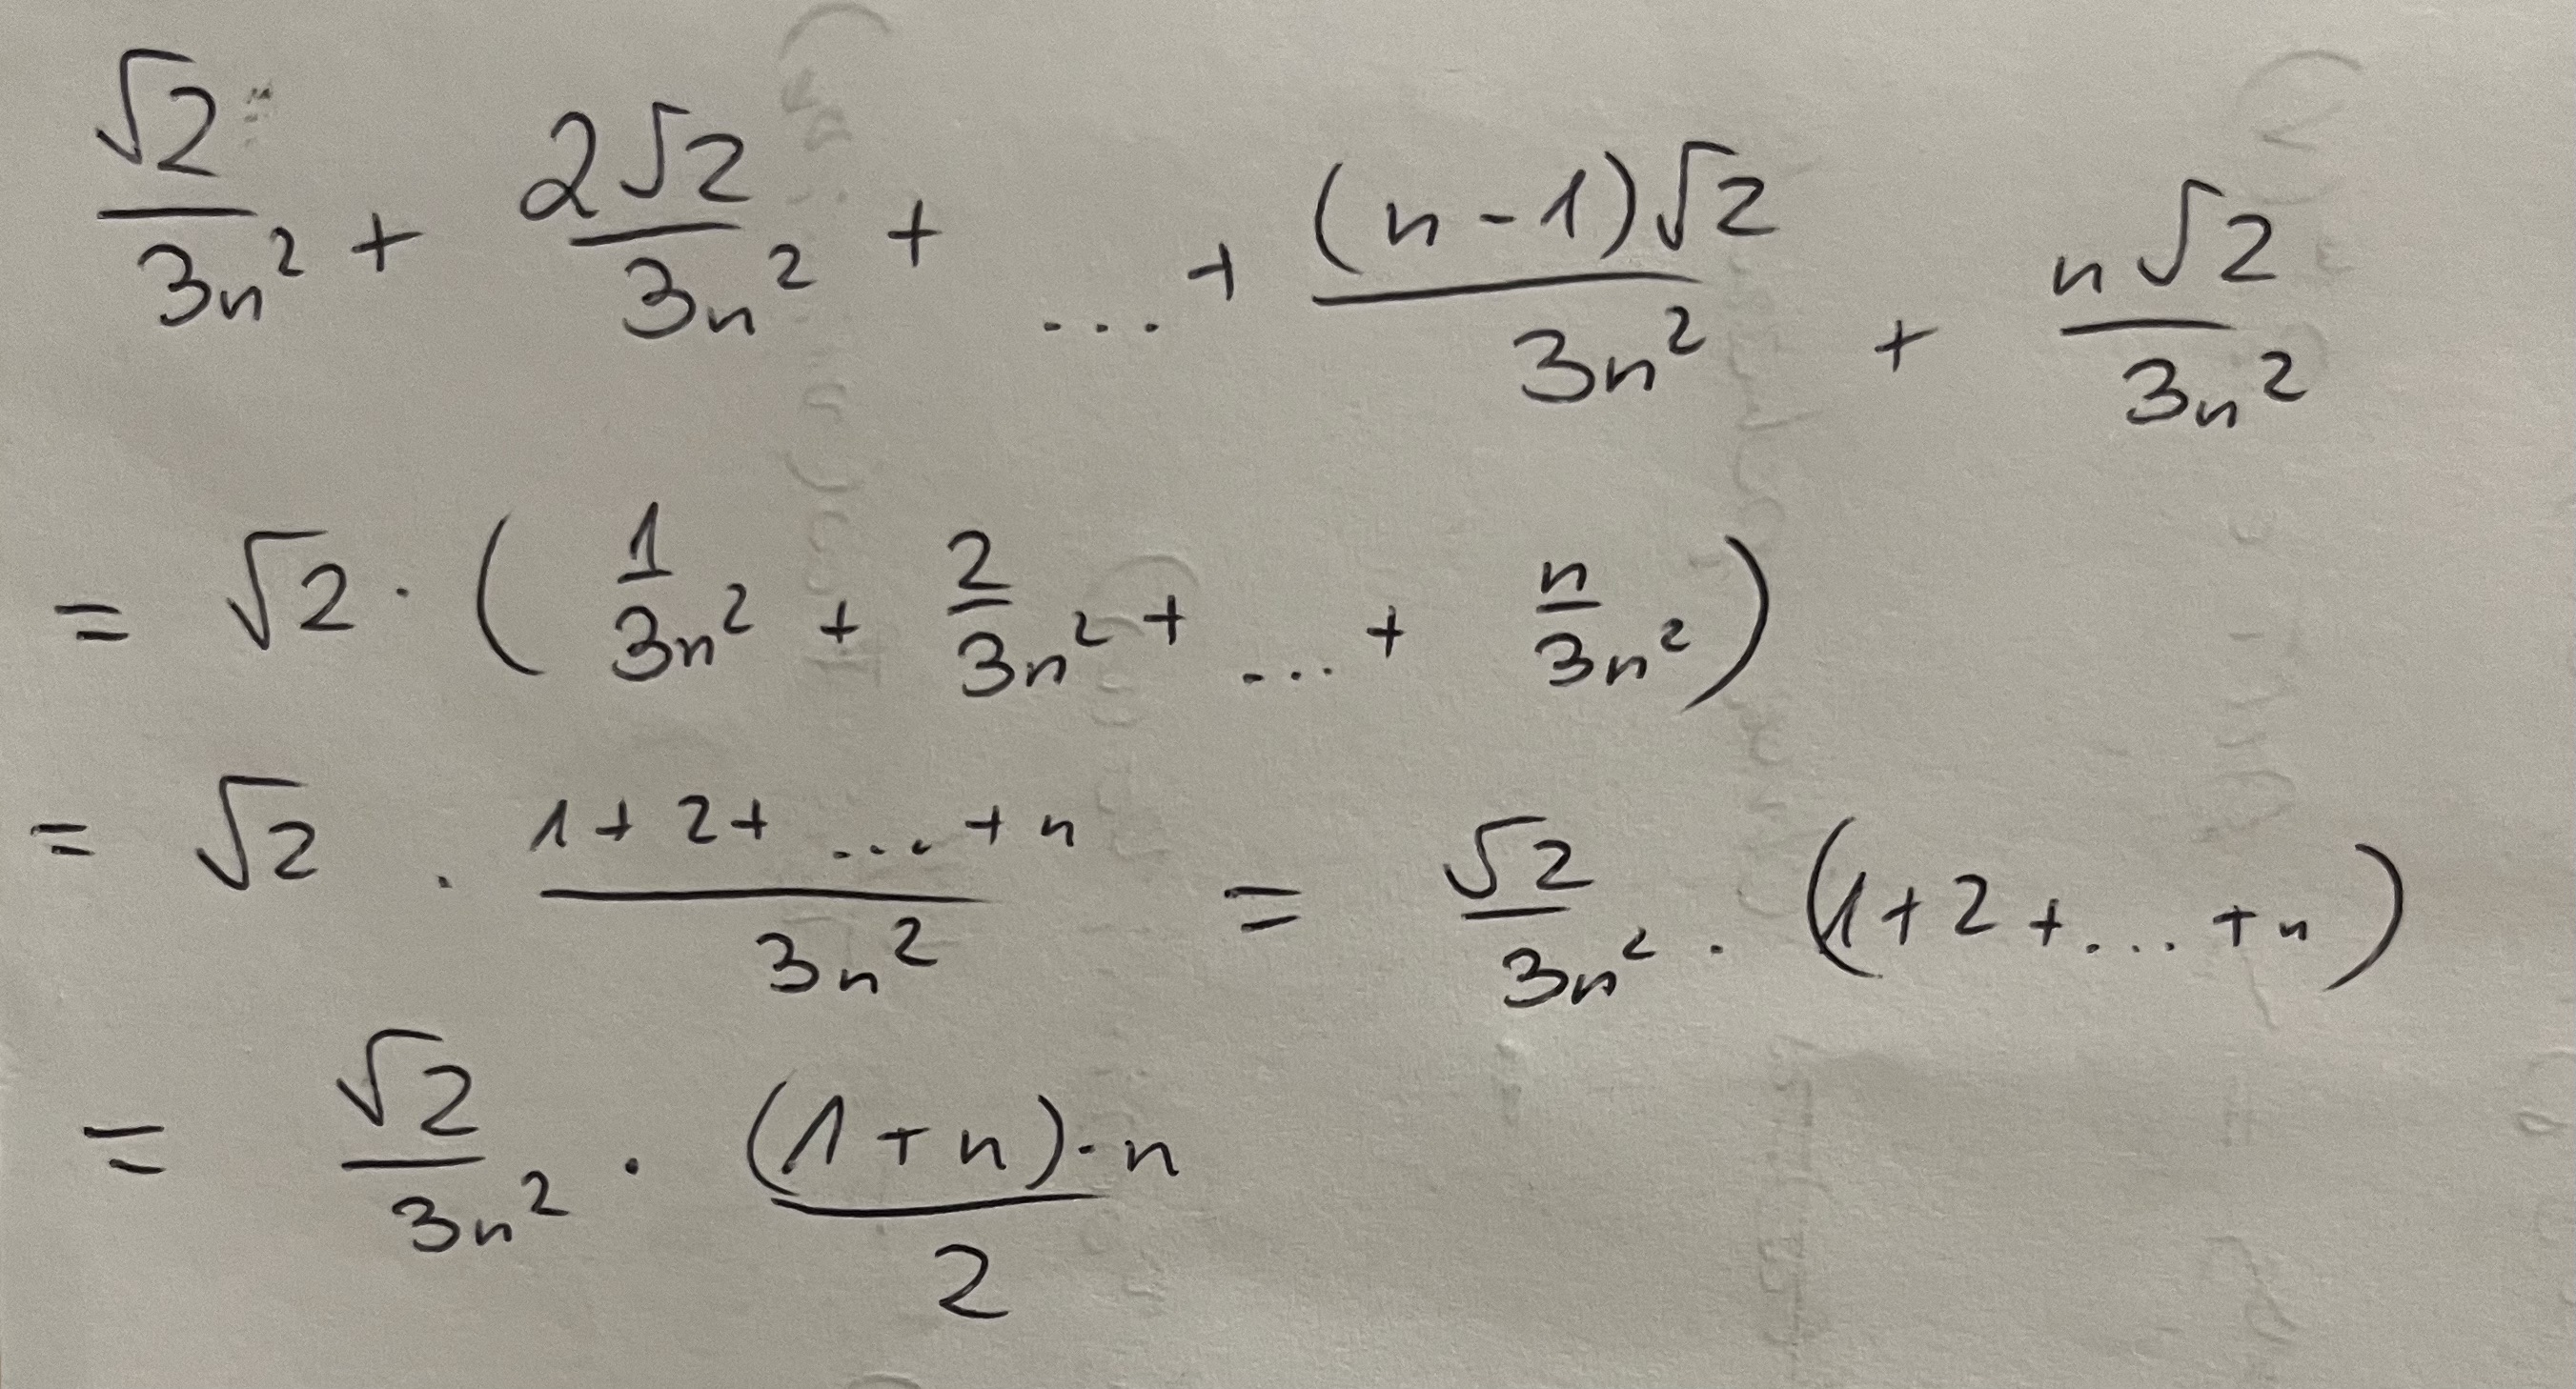 √2/3n² + 2√2/3n² + ... + (n-1)√2/3n² + n√2/3n²
= √2 · (1/3n² + 2/3n² + ... + n/3n²)
= √2 · 1+2+...+n/3n² = √2/3n² · (1+2+...+n)
= √2/3n² · (1+n)·n/2